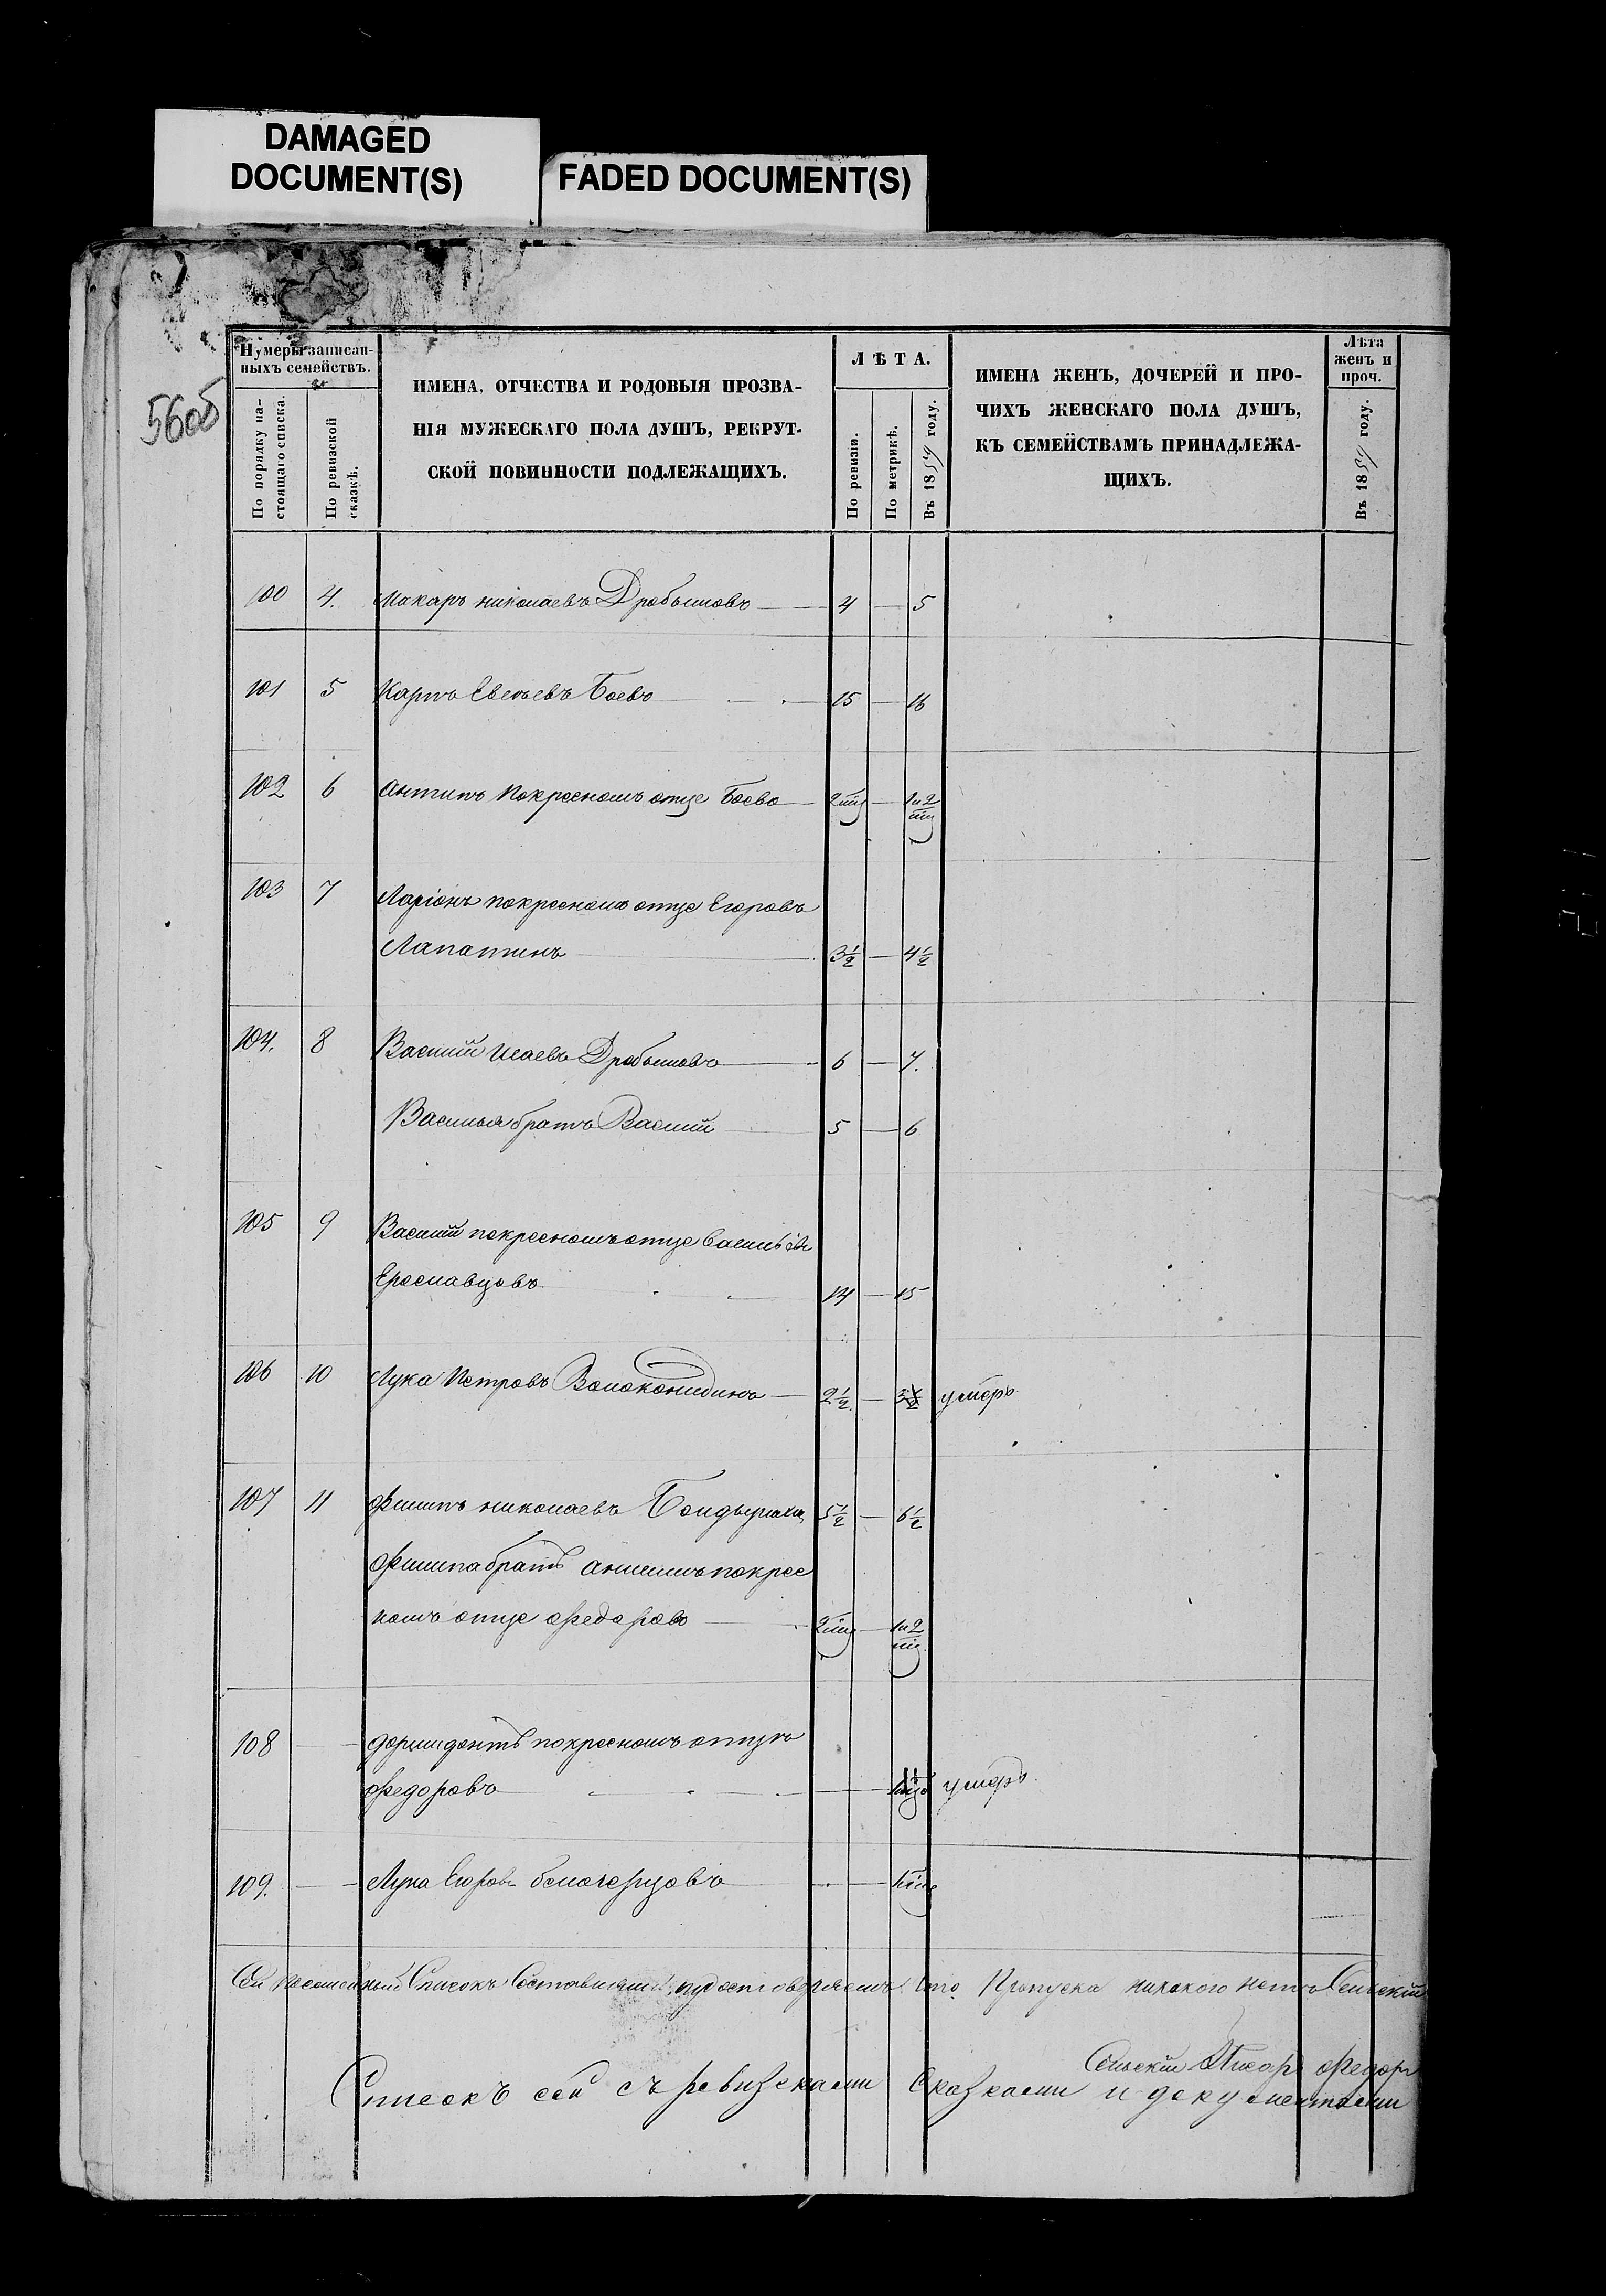 DAMAGED
DOCUMENT(S)
FADED DOCUMENT(S)
560б
Нумеры записан-
ныхъ семействъ.
По порядку на-
стоящаго списка.
По ревизской
сказкѣ.
ИМЕНА, ОТЧЕСТВА И РОДОВЫЯ ПРОЗВА-
НІЯ МУЖЕСКАГО ПОЛА ДУШЪ, РЕКРУТ-
СКОЙ ПОВИННОСТИ ПОДЛЕЖАЩИХЪ.
ЛѢТА.
По ревизіи.
По метрикѣ.
Въ 1859 году.
ИМЕНА ЖЕНЪ, ДОЧЕРЕЙ И ПРО-
ЧИХЪ ЖЕНСКАГО ПОЛА ДУШЪ,
КЪ СЕМЕЙСТВАМЪ ПРИНАДЛЕЖА-
ЩИХЪ.
Лѣта
женъ и
проч.
Въ 1859 году.
100 4. Макаръ николаевъ Дробышовъ — 4 — 5
101 5 Карпъ Евсѣевъ Боевъ — 15 — 16
102 6 Антипъ покресномъ отце Боевъ — 2 мц — 1 и 2 мц
103 7 Ларіонъ покресномъ отце Егоровъ
Лапатинъ — 3½ — 4½
104. 8 Василий Исаевъ Дробышовъ — 6 — 7.
Василья братъ Василий 5 — 6
105 9 Василий покресномъ отце Василь
Ерославцовъ 14 — 15
106 10 Лука Петровъ — 2½ — 3½ умеръ
107 11 Филипъ николаевъ 5½ — 6½
Филипа братъ Анисимъ покрес
номъ отце Федоровъ — 2 мц — 1 и 2 мц
108 — Дормидонтъ покресномъ отцу
Федоровъ — умеръ
109. — Лука Егоровъ Белогерцовъ — —
Сей посемейный Списокъ Составленный что Пропуска никакого нетъ Сельский
Сельский Писарь Федоръ
Списокъ сей съ ревизскими Сказками и документами